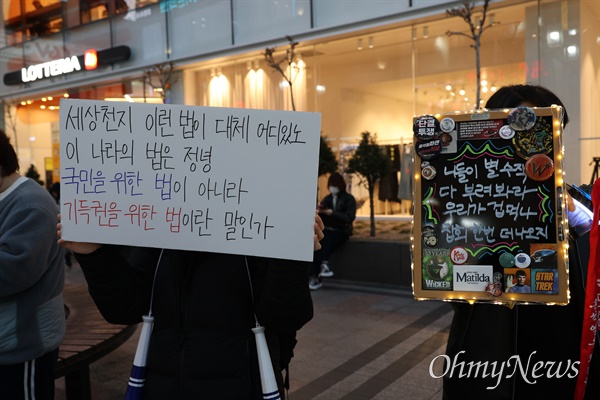 LOTTERIA
세상천지 이런 법이 대체 어디있노
이 나라의 법은 정녕
국민을 위한 법이 아니라
기득권을 위한 법이란 말인가
단결
투쟁
너들이 별 수작
다 부려봐라
우리가 겁먹나
집회 한번 더 나오지
WICKED
Matilda
STAR
TREK
OhmyNews